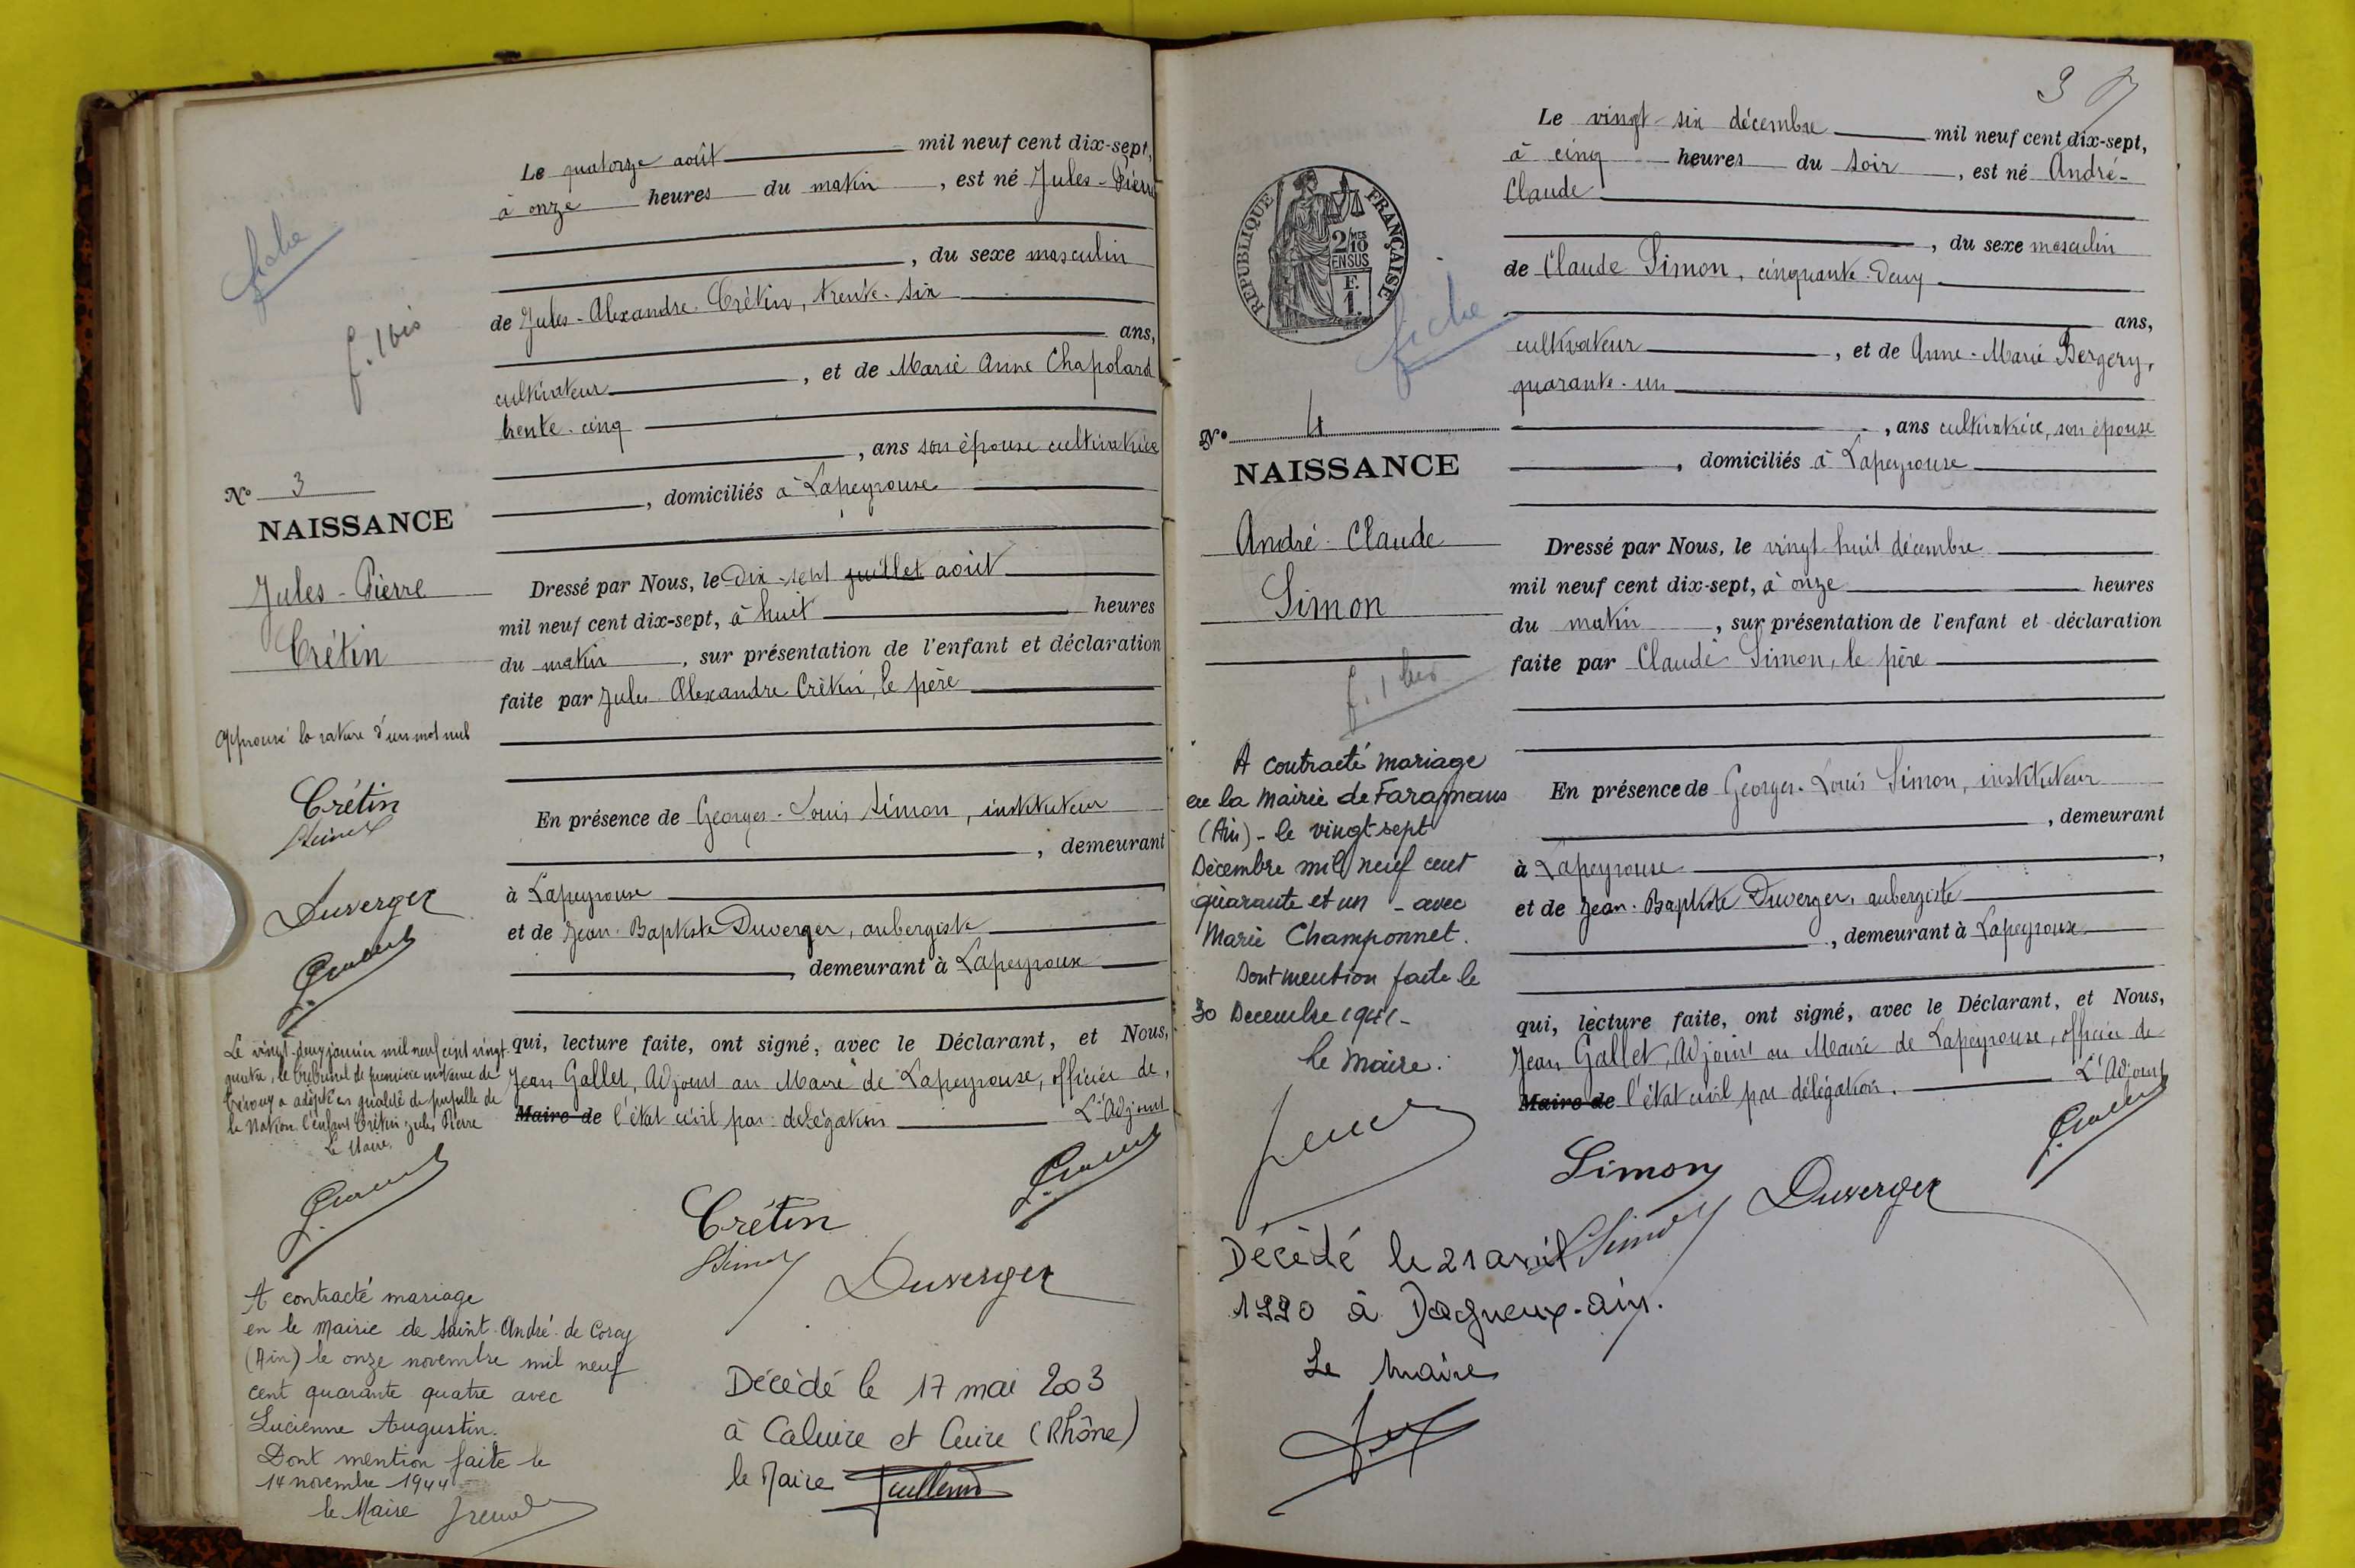 fiche
f. 1 bis
N° 3
NAISSANCE
Jules - Pierre
Crétin
Approuvé la rature d'un mot nul
Crétin
Simon
Duverger
J. Gallet
Le vingt-deux janvier mil neuf cent vingt
quatre, le tribunal de première instance de
Trévoux a adopté en qualité de pupille de
la Nation l'enfant Crétin Jules Pierre
Le Maire,
A contracté mariage
en le Mairie de Saint-André-de Corcy
(Ain) le onze novembre mil neuf
cent quarante quatre avec
Lucienne Augustin.
Dont mention faite le
14 novembre 1944
le Maire
Le quatorze août mil neuf cent dix-sept,
à onze heures du matin, est né Jules - Pierre
, du sexe masculin
de Jules - Alexandre Crétin, trente-six
ans,
cultivateur, et de Marie Anne Chapolard
trente-cinq
, ans son épouse cultivatrice
, domiciliés à Lapeyrouse
Dressé par Nous, le dix-sept juillet août
mil neuf cent dix-sept, à huit heures
du matin, sur présentation de l'enfant et déclaration
faite par Jules Alexandre Crétin, le père
En présence de Georges-Louis Simon, instituteur
, demeurant
à Lapeyrouse
et de Jean-Baptiste Duverger, aubergiste
, demeurant à Lapeyrouse
qui, lecture faite, ont signé, avec le Déclarant, et Nous,
Jean Gallet, Adjoint au Maire de Lapeyrouse, officier de
Maire de l'état civil par délégation L'Adjoint
J. Gallet
Crétin
Simon
Duverger
Décédé le 17 mai 2003
à Caluire et Cuire (Rhône)
le Maire
3
RÉPUBLIQUE FRANÇAISE
2/10 MES
EN SUS
F.
1.
fiche
N° 4
NAISSANCE
André-Claude
Simon
f. 1 bis
A contracté mariage
en la Mairie de Faramans
(Ain) - le vingt sept
Décembre mil neuf cent
quarante et un - avec
Marie Champonnet.
Dont mention faite le
30 Decembre 1941 -
le Maire :
Décédé le 21 avril
1990 à Dagneux-ain.
Le Maire
Le vingt-six décembre mil neuf cent dix-sept,
à cinq heures du soir, est né André-
Claude
, du sexe masculin
de Claude Simon, cinquante-deux
ans,
cultivateur, et de Anne-Marie Bergery,
quarante-un
, ans cultivatrice, son épouse
, domiciliés à Lapeyrouse
Dressé par Nous, le vingt huit décembre
mil neuf cent dix-sept, à onze heures
du matin, sur présentation de l'enfant et déclaration
faite par Claude Simon, le père
En présence de Georges-Louis Simon, instituteur
, demeurant
à Lapeyrouse,
et de Jean-Baptiste Duverger, aubergiste
, demeurant à Lapeyrouse
qui, lecture faite, ont signé, avec le Déclarant, et Nous,
Jean Gallet, Adjoint au Maire de Lapeyrouse, officier de
Maire de l'état civil par délégation. L'Adjoint
J. Gallet
Simon
Simon
Duverger